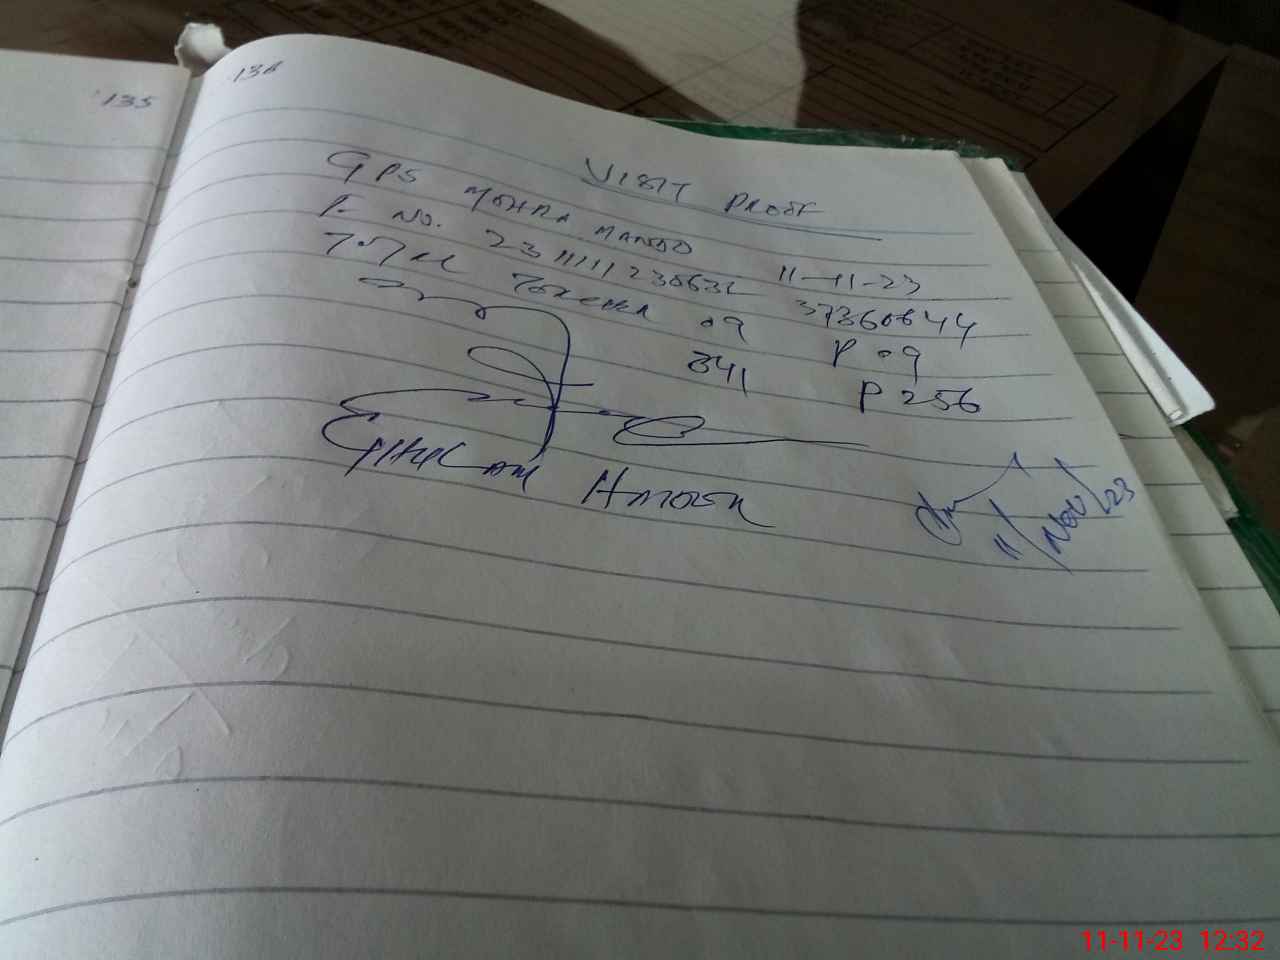 135
136
VISIT PROOF
GPS MOHRA MANDO 11-11-23
P. No. 37360644
Total Teacher 09 P 09
341 P 256
11/Nov/23
11-11-23 12:32